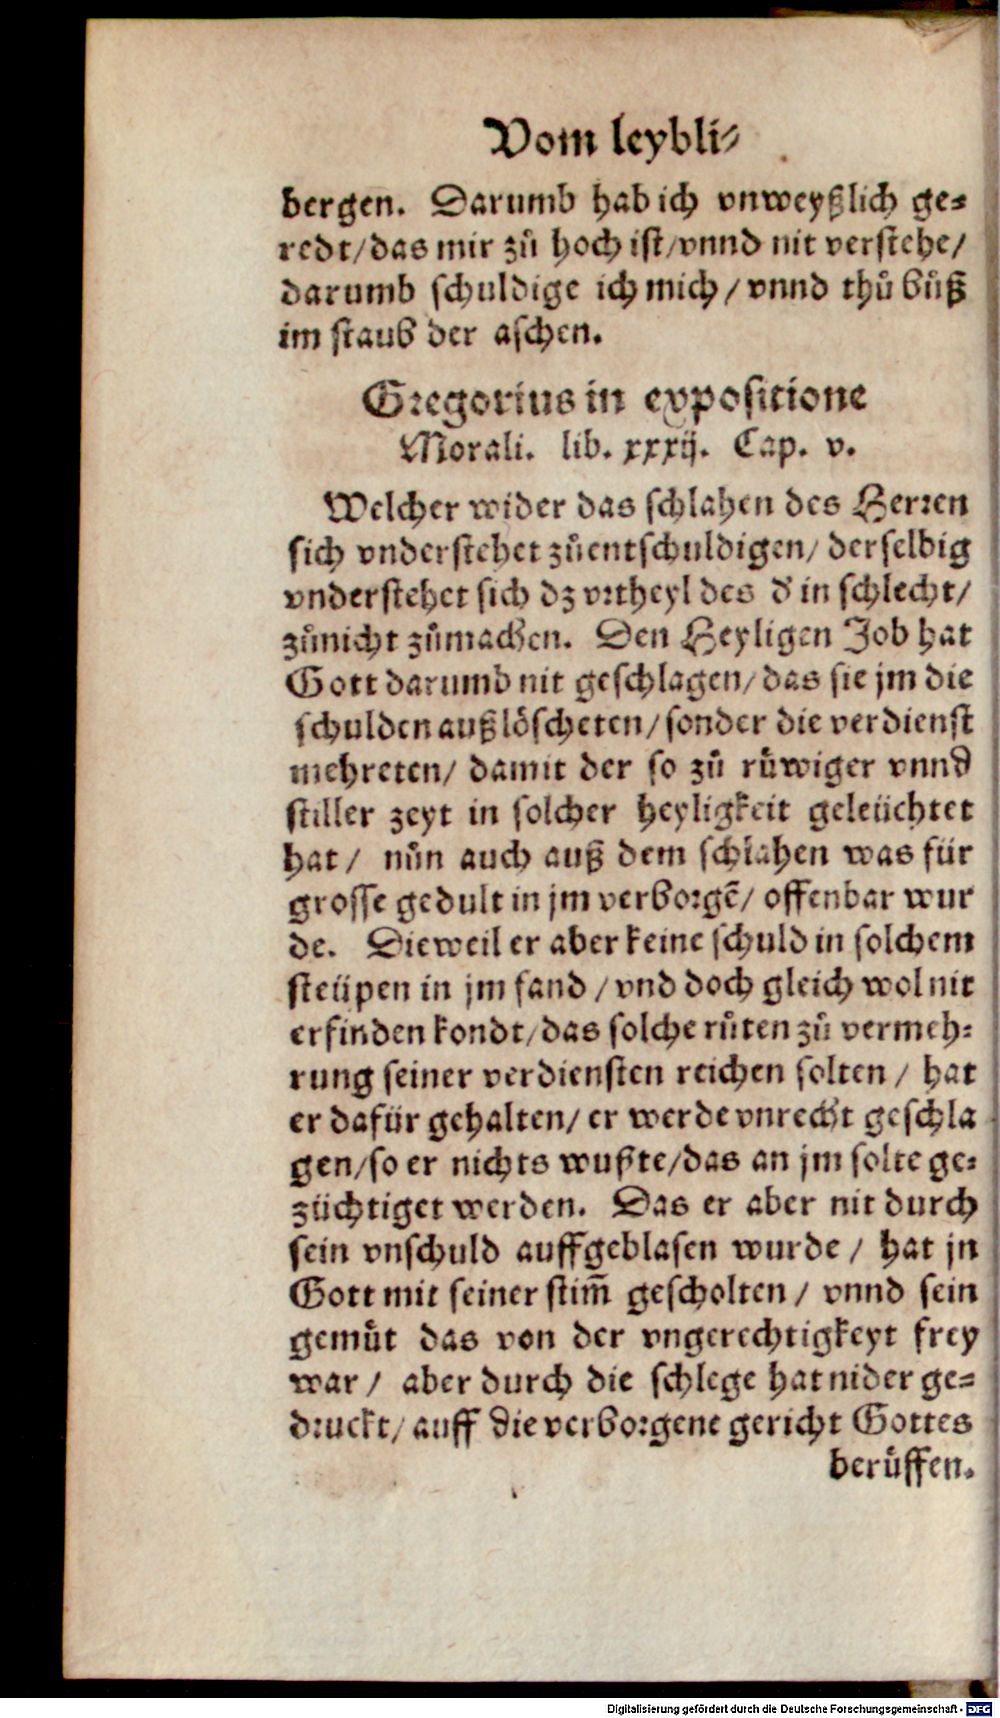 Vom leybli⸗
bergen. Darumb hab ich vnweyßlich ge⸗
redt/das mir zů hoch ist/vnnd nit verstehe/
darumb schuldige ich mich/ vnnd thů bůß
im staub der aschen.
Gregorius in expositione
Morali. lib. xxxij. Cap. v.
Welcher wider das schlahen des Herren
sich vnderstehet zůentschuldigen/ derselbig
vnderstehet sich dz vrtheyl des d' in schlecht/
zůnicht zůmachen. Den Heyligen Job hat
Gott darumb nit geschlagen/das sie jm die
schulden außlöscheten/sonder die verdienst
mehreten/ damit der so zů růwiger vnnd
stiller zeyt in solcher heyligkeit geleüchtet
hat/ nůn auch auß dem schlahen was für
grosse gedult in jm verborgē/ offenbar wur
de. Dieweil er aber keine schuld in solchem
steüpen in jm fand /vnd doch gleich wol nit
erfinden kondt/das solche růten zů vermeh⸗
rung seiner verdiensten reichen solten / hat
er dafür gehalten/ er werde vnrecht geschla
gen/so er nichts wußte/das an jm solte ge⸗
züchtiget werden. Das er aber nit durch
sein vnschuld auffgeblasen wurde / hat jn
Gott mit seiner stim̄ gescholten / vnnd sein
gemůt das von der vngerechtigkeyt frey
war / aber durch die schlege hat nider ge⸗
druckt/ auff die verborgene gericht Gottes
berůffen.
Digitalisierung gefördert durch die Deutsche Forschungsgemeinschaft - DFG